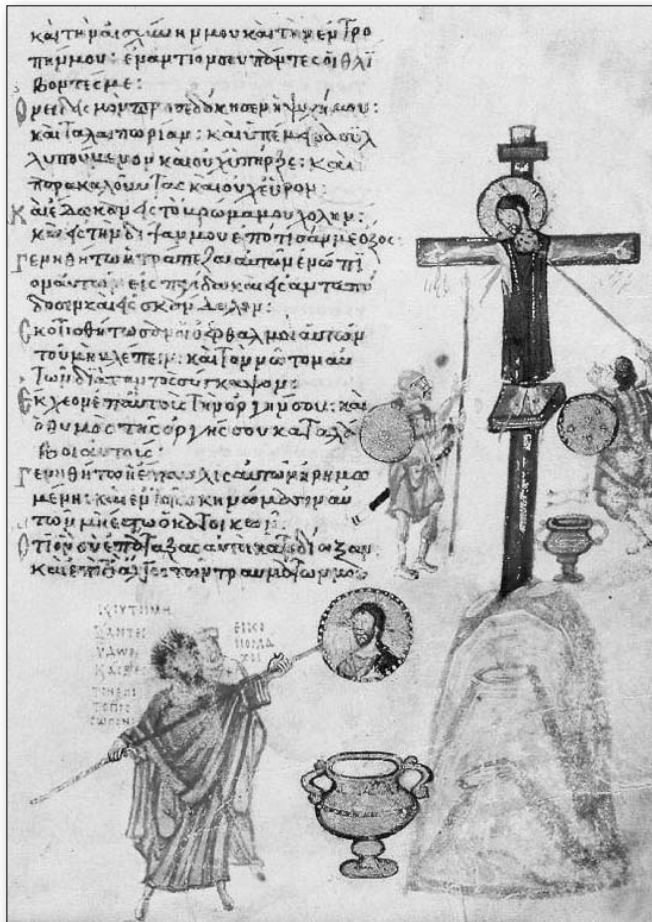 καὶ τὴν αἰσχύνην μου καὶ τὴν ἐντρο
πήν μου: ἐναντίον σου πάντες οἱ θλί
βοντές με:
Ὀνειδισμὸν προσεδόκησεν ἡ ψυχή μου:
καὶ ταλαιπωρίαν: καὶ ὑπέμεινα συλ
λυπούμενον καὶ οὐχ ὑπῆρξε: καὶ
παρακαλοῦντας καὶ οὐχ εὗρον:
Καὶ ἔδωκαν εἰς τὸ βρῶμά μου χολήν:
καὶ εἰς τὴν δίψαν μου ἐπότισάν με ὄξος:
Γενηθήτω ἡ τράπεζα αὐτῶν ἐνώπι
ον αὐτῶν εἰς παγίδα καὶ εἰς ἀνταπό
δοσιν καὶ εἰς σκάνδαλον:
Σκοτισθήτωσαν οἱ ὀφθαλμοὶ αὐτῶν
τοῦ μὴ βλέπειν: καὶ τὸν νῶτον αὐ
τῶν διαπαντὸς σύγκαμψον:
Ἔκχεον ἐπ αὐτοὺς τὴν ὀργήν σου: καὶ
ὁ θυμὸς τῆς ὀργῆς σου καταλά
βοι αὐτούς:
Γενηθήτω ἡ ἔπαυλις αὐτῶν ἠρημω
μένη: καὶ ἐν τοῖς σκηνώμασιν αὐ
τῶν μὴ ἔστω ὁ κατοικῶν:
Ὅτι ὃν σὺ ἐπάταξας αὐτοὶ κατεδίωξαν:
καὶ ἐπὶ τὸ ἄλγος τῶν τραυμάτων μου
ΕΙΚΟ
ΝΟΜΑ
ΧΟΙ
ΥΔΩΡ